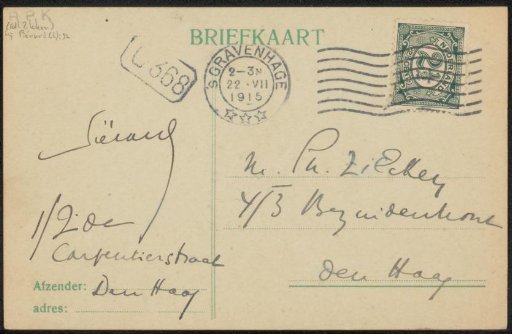 A.P.K
BRIEFKAART
C 368
'S GRAVENHAGE
2-3N
22·VII
1915
M. Ph. Zilcken
4/3 Bezuidenhout
den Haag
1/2 de
Carpentierstraat
Afzender: Den Haag
adres: